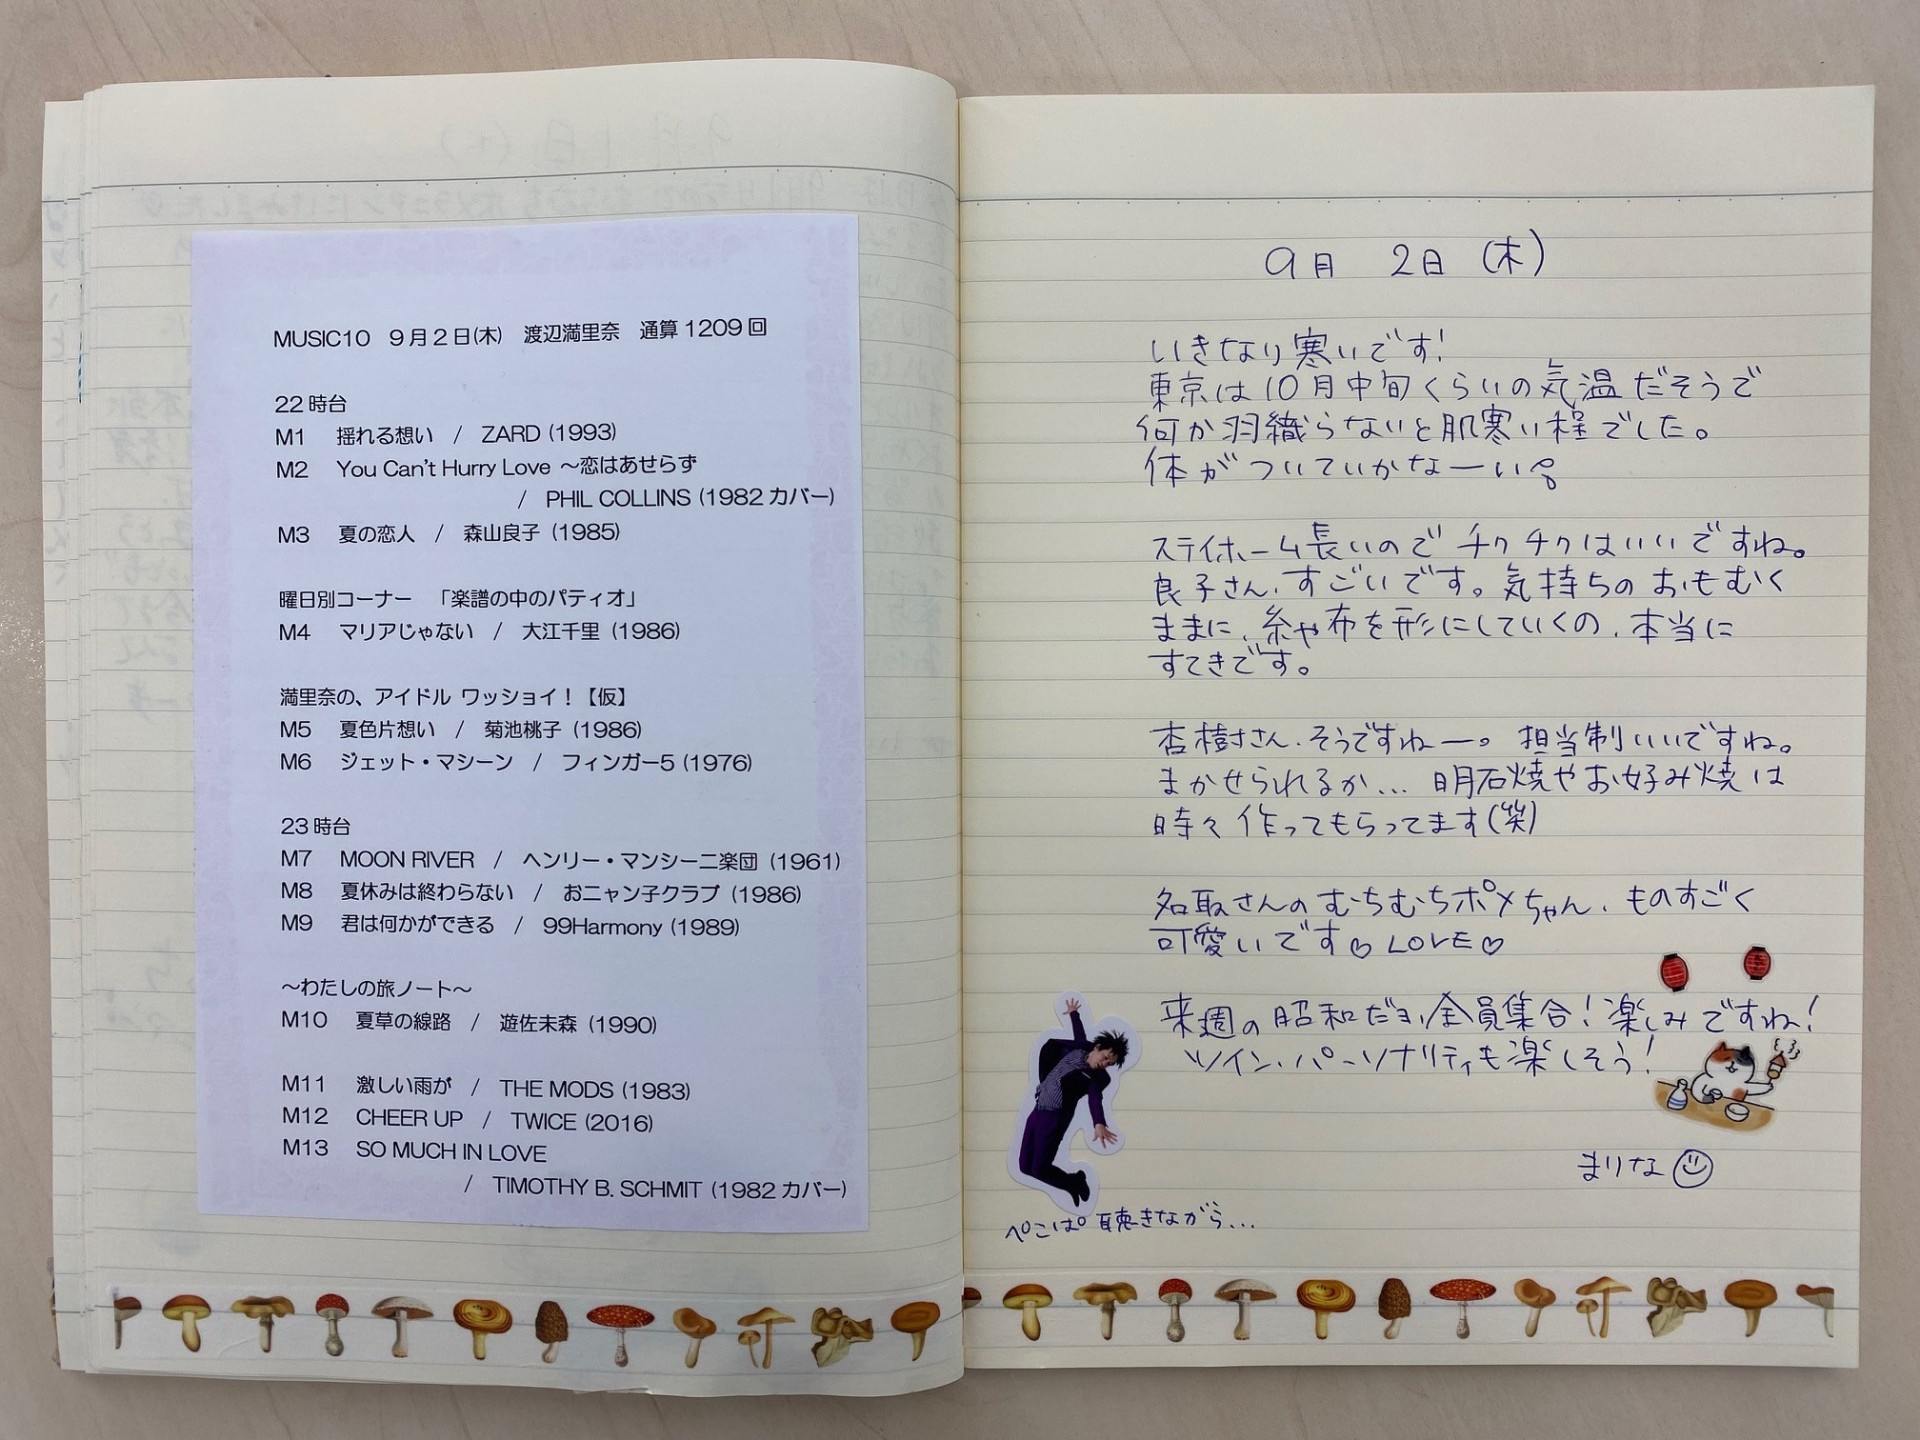 MUSIC10 9月2日(木) 渡辺満里奈 通算1209回
22時台
M1 揺れる想い / ZARD (1993)
M2 You Can't Hurry Love ～恋はあせらず
/ PHIL COLLINS (1982カバー)
M3 夏の恋人 / 森山良子 (1985)
曜日別コーナー 「楽譜の中のパティオ」
M4 マリアじゃない / 大江千里 (1986)
満里奈の、アイドル ワッショイ！【仮】
M5 夏色片想い / 菊池桃子 (1986)
M6 ジェット・マシーン / フィンガー5 (1976)
23時台
M7 MOON RIVER / ヘンリー・マンシーニ楽団 (1961)
M8 夏休みは終わらない / おニャン子クラブ (1986)
M9 君は何かができる / 99Harmony (1989)
～わたしの旅ノート～
M10 夏草の線路 / 遊佐未森 (1990)
M11 激しい雨が / THE MODS (1983)
M12 CHEER UP / TWICE (2016)
M13 SO MUCH IN LOVE
/ TIMOTHY B. SCHMIT (1982カバー)
9月 2日 (木)
いきなり寒いです!
東京は10月中旬くらいの気温だそうで
何か羽織らないと肌寒い程でした。
体がついていかなーい。
ステイホーム長いのでチクチクはいいですね。
良子さん、すごいです。気持ちのおもむく
ままに、糸や布を形にしていくの、本当に
すてきです。
杏樹さん、そうですねー。担当制いいですね。
まかせられるか… 明石焼やお好み焼は
時々作ってもらってます(笑)
名取さんのむちむちポメちゃん、ものすごく
可愛いです♡LOVE♡
来週の昭和だョ、全員集合！楽しみですね！
ツイン・パーソナリティも楽しそう！
まりな
ぺこぱ聴きながら…